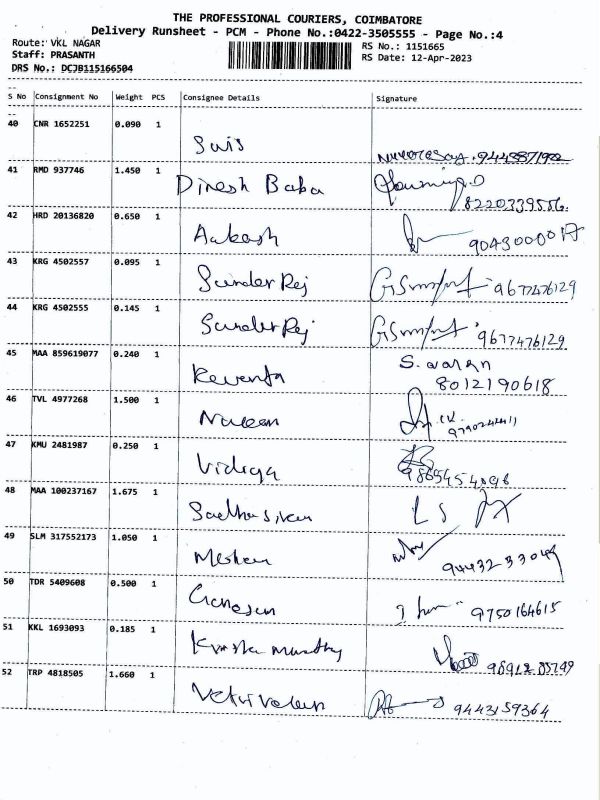 THE PROFESSIONAL COURIERS, COIMBATORE
Delivery Runsheet - PCM - Phone No.:0422-3505555 - Page No.:4
Route: VKL NAGAR RS No.: 1151665
Staff: PRASANTH RS Date: 12-Apr-2023
DRS No.: DCJB115166504
S No Consignment No Weight PCS Consignee Details Signature
40 CNR 1652251 0.090 1
41 RMD 937746 1.450 1 Dinesh Baba 8220339556.
42 HRD 20136820 0.650 1 Aakash 9043000017
43 KRG 4502557 0.095 1 Sunder Raj 9677476129
44 KRG 4502555 0.145 1 Sunder Raj 9677476129
45 MAA 859619077 0.240 1 S. varan
8012190618
46 TVL 4977268 1.500 1 Naveen
47 KMU 2481987 0.250 1 Vidiya
48 MAA 100237167 1.675 1 LS
49 SLM 317552173 1.050 1
50 TDR 5409608 0.500 1 Ganesan 9750164615
51 KKL 1693093 0.185 1
52 TRP 4818505 1.660 1 9443159364